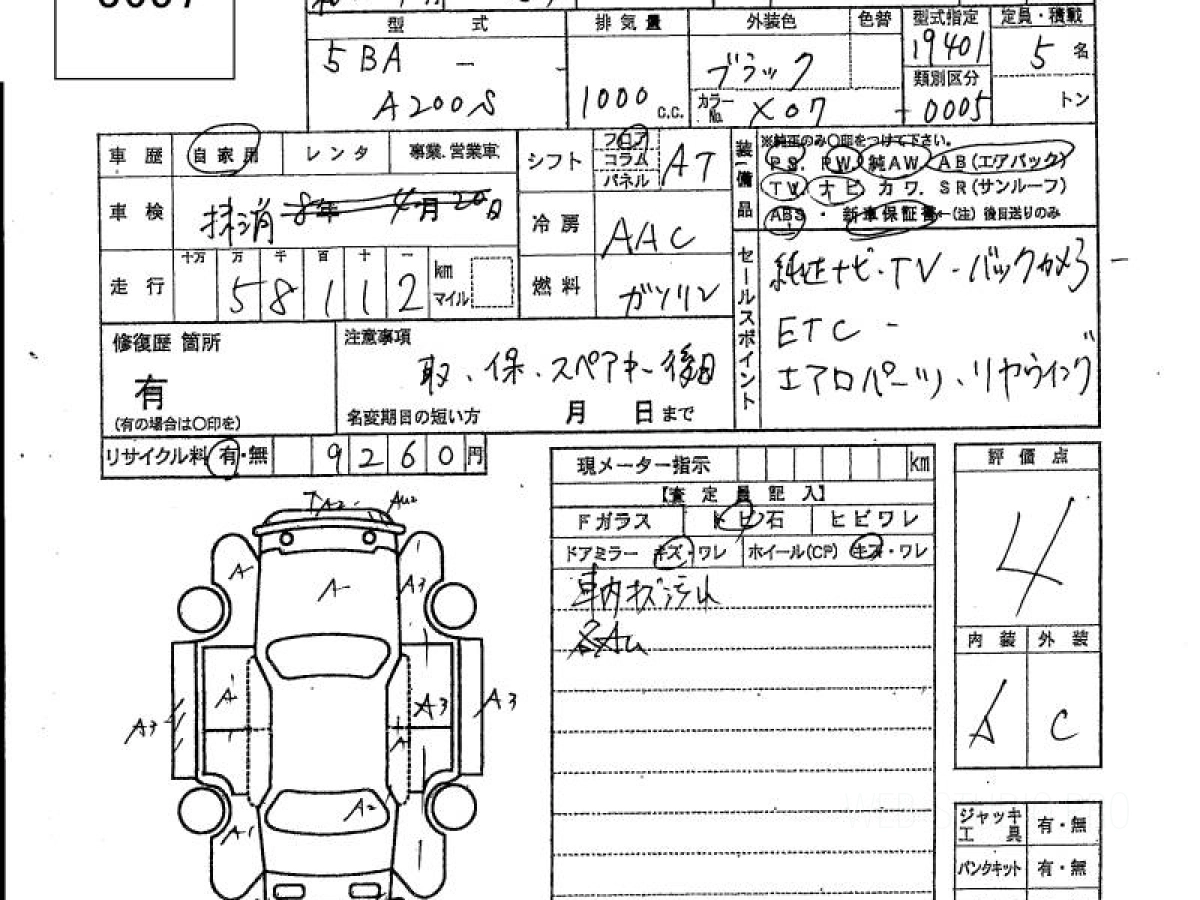 型 式
排気量
外装色
色替
型式指定
定員・積載
5BA -
A200S
1000 c.c.
ブラック
カラーNo. X07
19401
類別区分
-0005
5 名
トン
車歴 自家用 レンタ 事業.営業車
車検 抹消 8年 4月 20日
走行 十万 万 千 百 十 一
58112 km マイル
シフト フロア コラム パネル AT
冷房 AAC
燃料 ガソリン
装備品
※純正のみ〇印をつけて下さい。
PS. PW. 純AW. AB(エアバック)
TV ナビ カワ. SR(サンルーフ)
ABS ・ 新車保証書←(注) 後日送りのみ
セールスポイント
純正ナビ・TV-バックカメラ-
ETC -
エアロパーツ、リヤウイング
修復歴 箇所
有
(有の場合は〇印を)
注意事項
取、保、スペアキー後日
名変期日の短い方 月 日まで
リサイクル料 有・無 9260円
現メーター指示 km
【査定員記入】
Fガラス トビ石 ヒビワレ
ドアミラー キズ・ワレ ホイール(CP) キズ・ワレ
車内キズ汚れ
各AU
評価点
4
内装 外装
C
A-
A3
A3
A3
A3
A2
A1
ジャッキ
工具 有・無
パンクキット 有・無